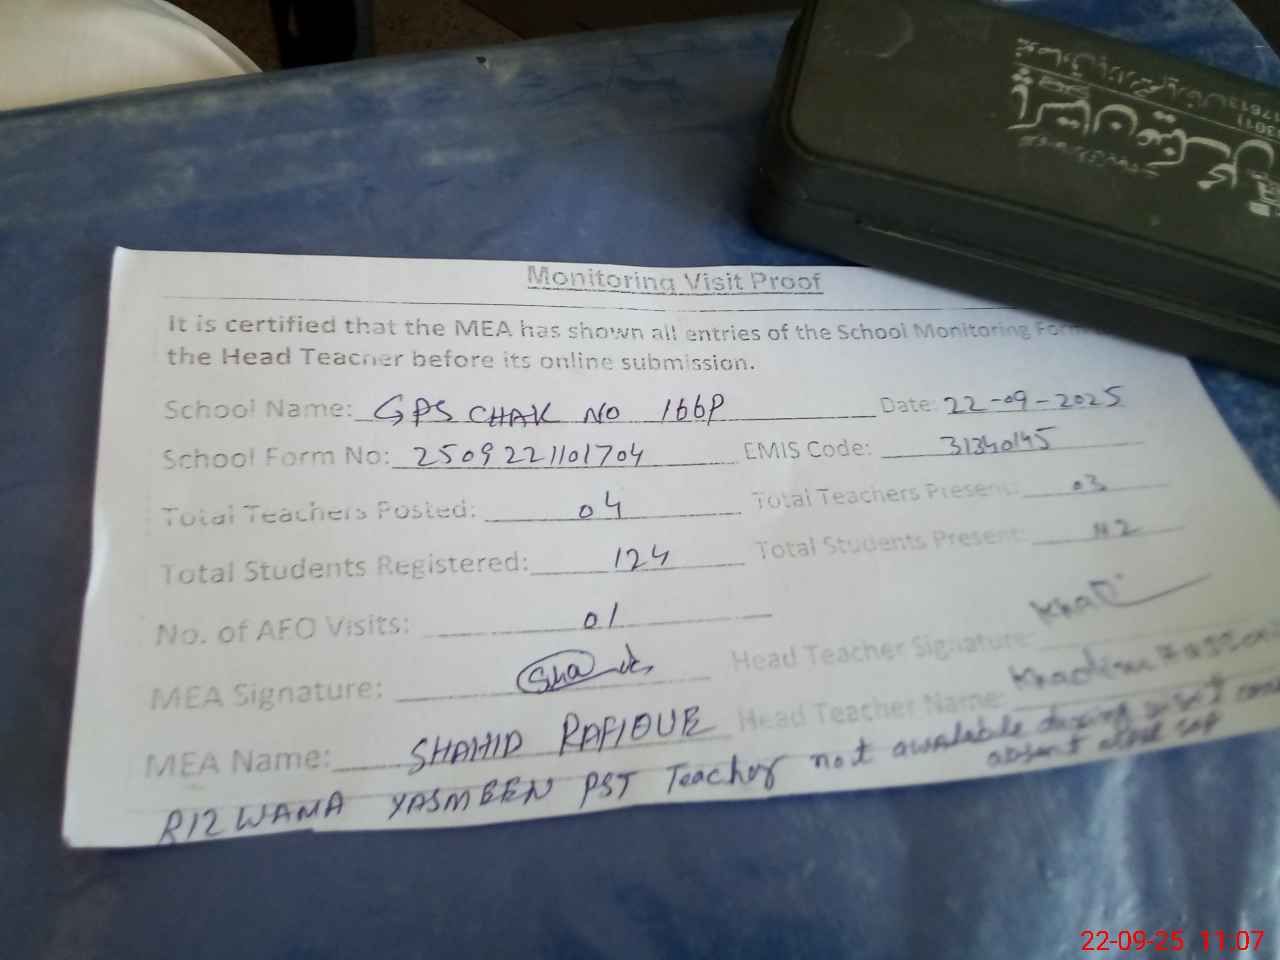 Monitoring Visit Proof
It is certified that the MEA has shown all entries of the School Monitoring Form
the Head Teacher before its online submission.
School Name: GPS CHAK NO 166P Date: 22-09-2025
School Form No: 2509221101704 EMIS Code: 31340145
Total Teachers Posted: 04 Total Teachers Present: 03
Total Students Registered: 124 Total Students Present:
No. of AEO Visits: 01
MEA Signature: Head Teacher Signature:
MEA Name: SHAHID RAFIQUE Head Teacher Name: Khadim
RIZWANA YASMEEN PST Teacher not available during visit
absent
22-09-25 11:07